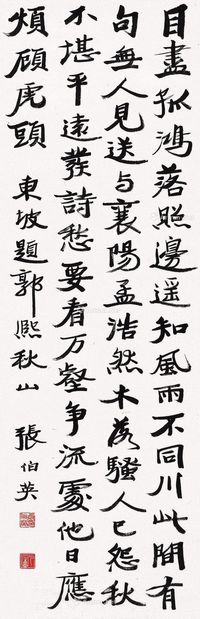 目盡孤鴻落照邊遥知風雨不同川此間有
句無人見送与襄陽孟浩然木落騷人已怨秋
不堪平遠發詩愁要看万壑争流處他日應
煩顧虎頭
東坡題郭熙秋山
張伯英